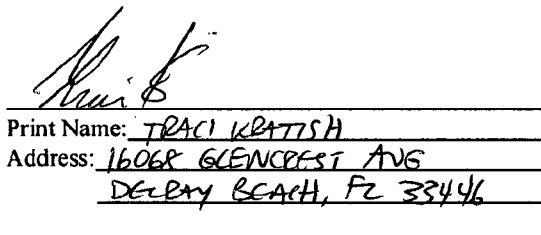 Traci K
Print Name: TRACI KRATISH
Address: 16068 GLENCREST AVE
DELRAY BEACH, FL 33446